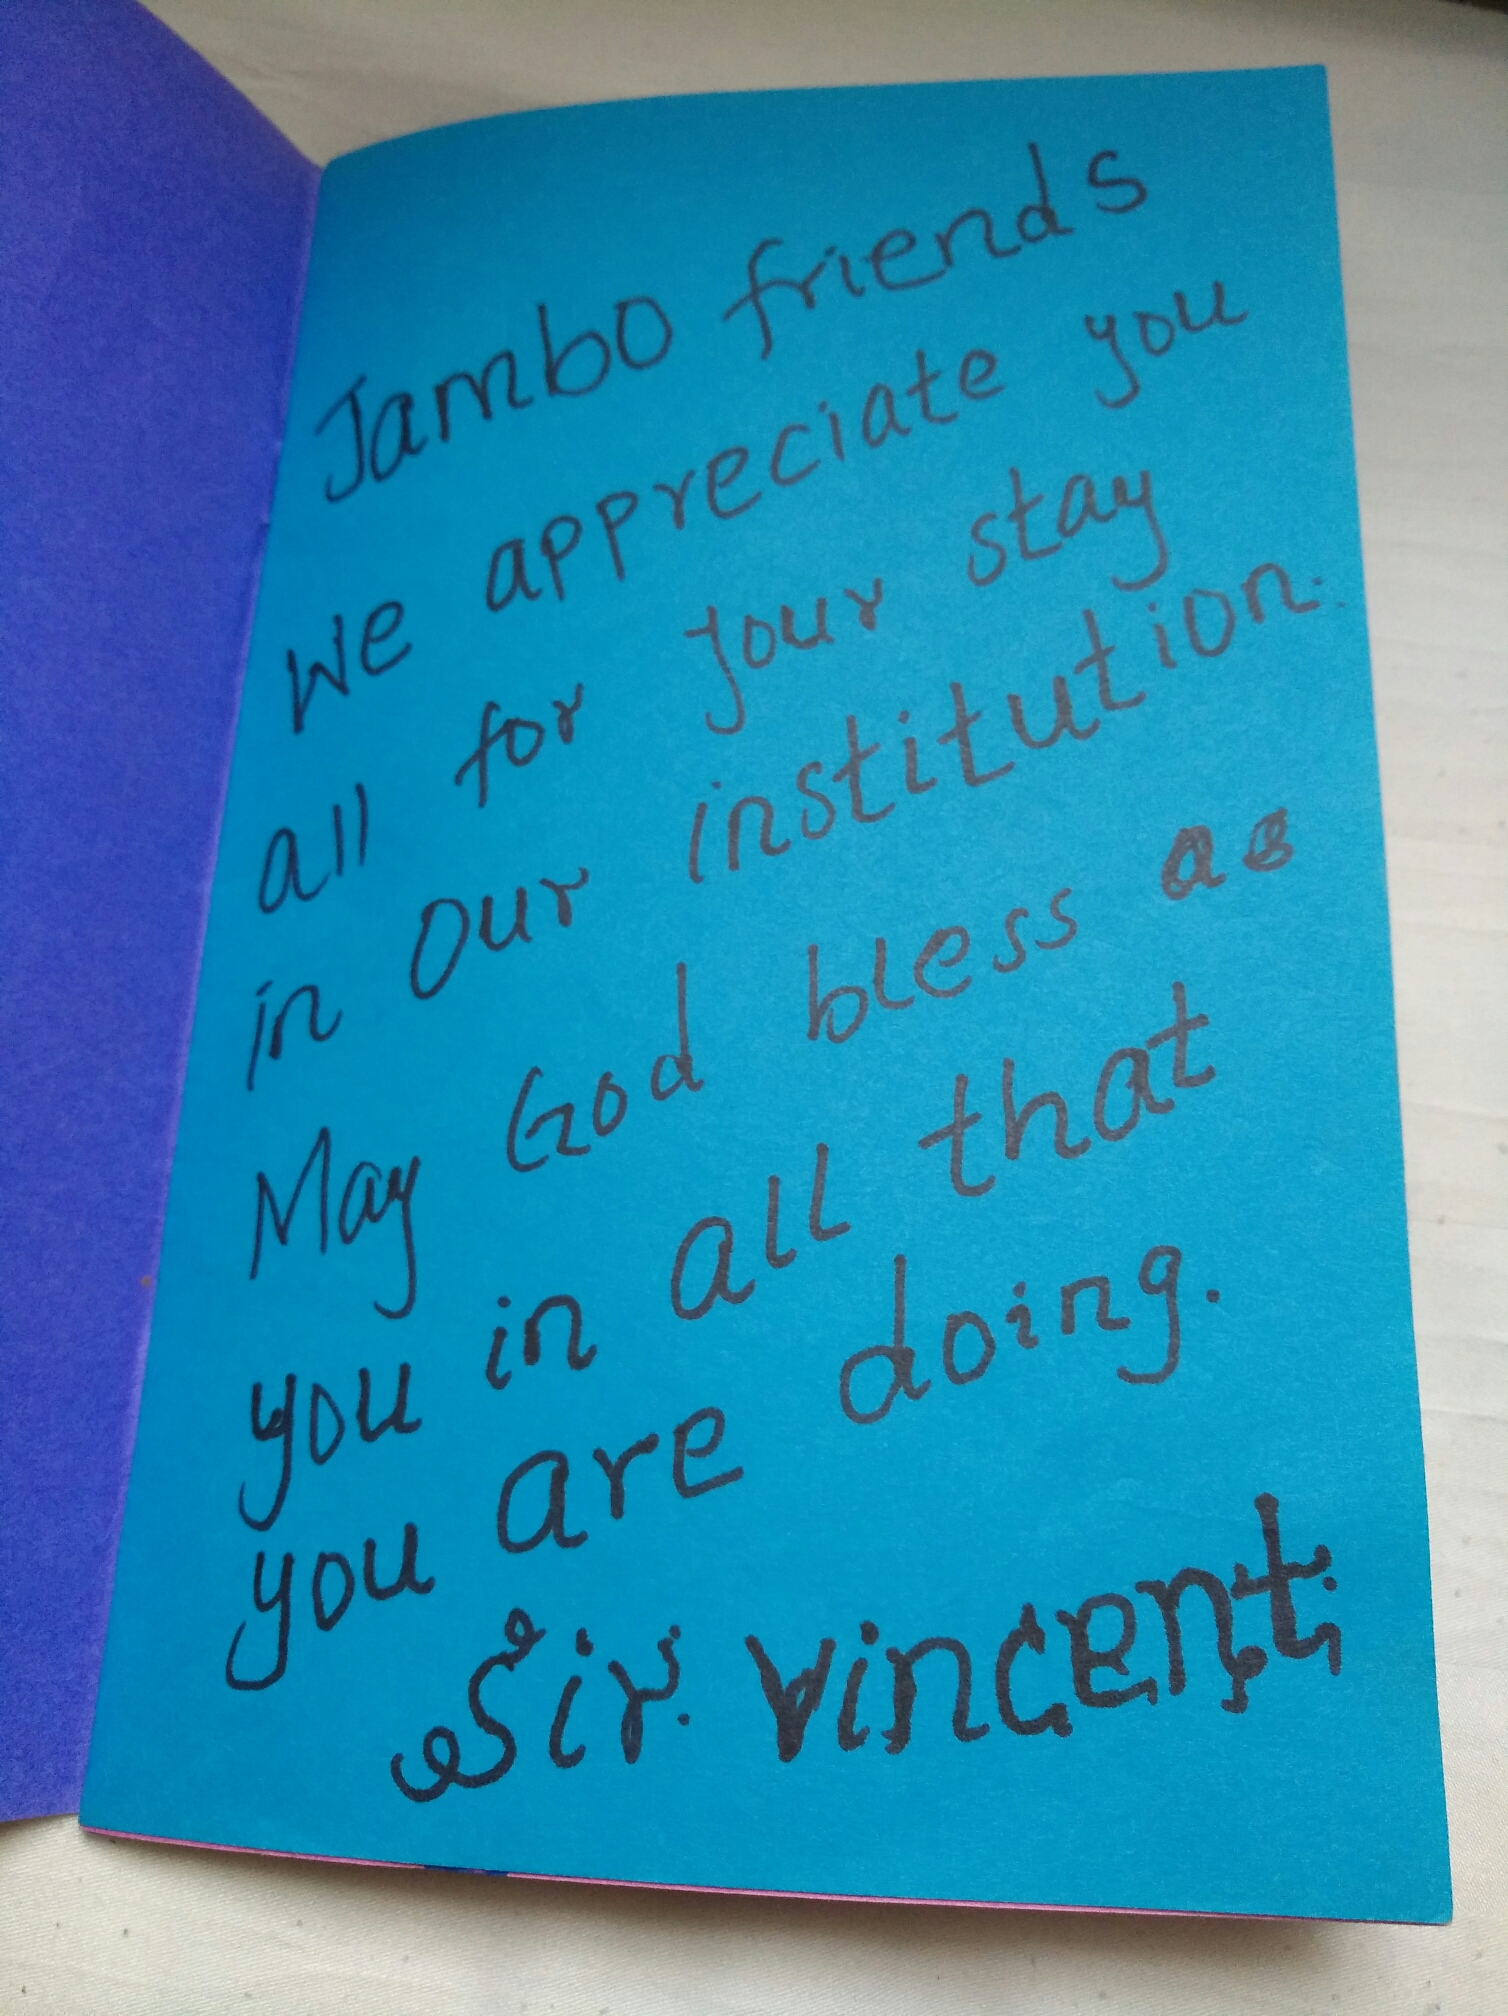 Jambo friends
We appreciate you
all for your stay
in our institution.
May God bless as
you in all that
you are doing.
Sir. Vincent.